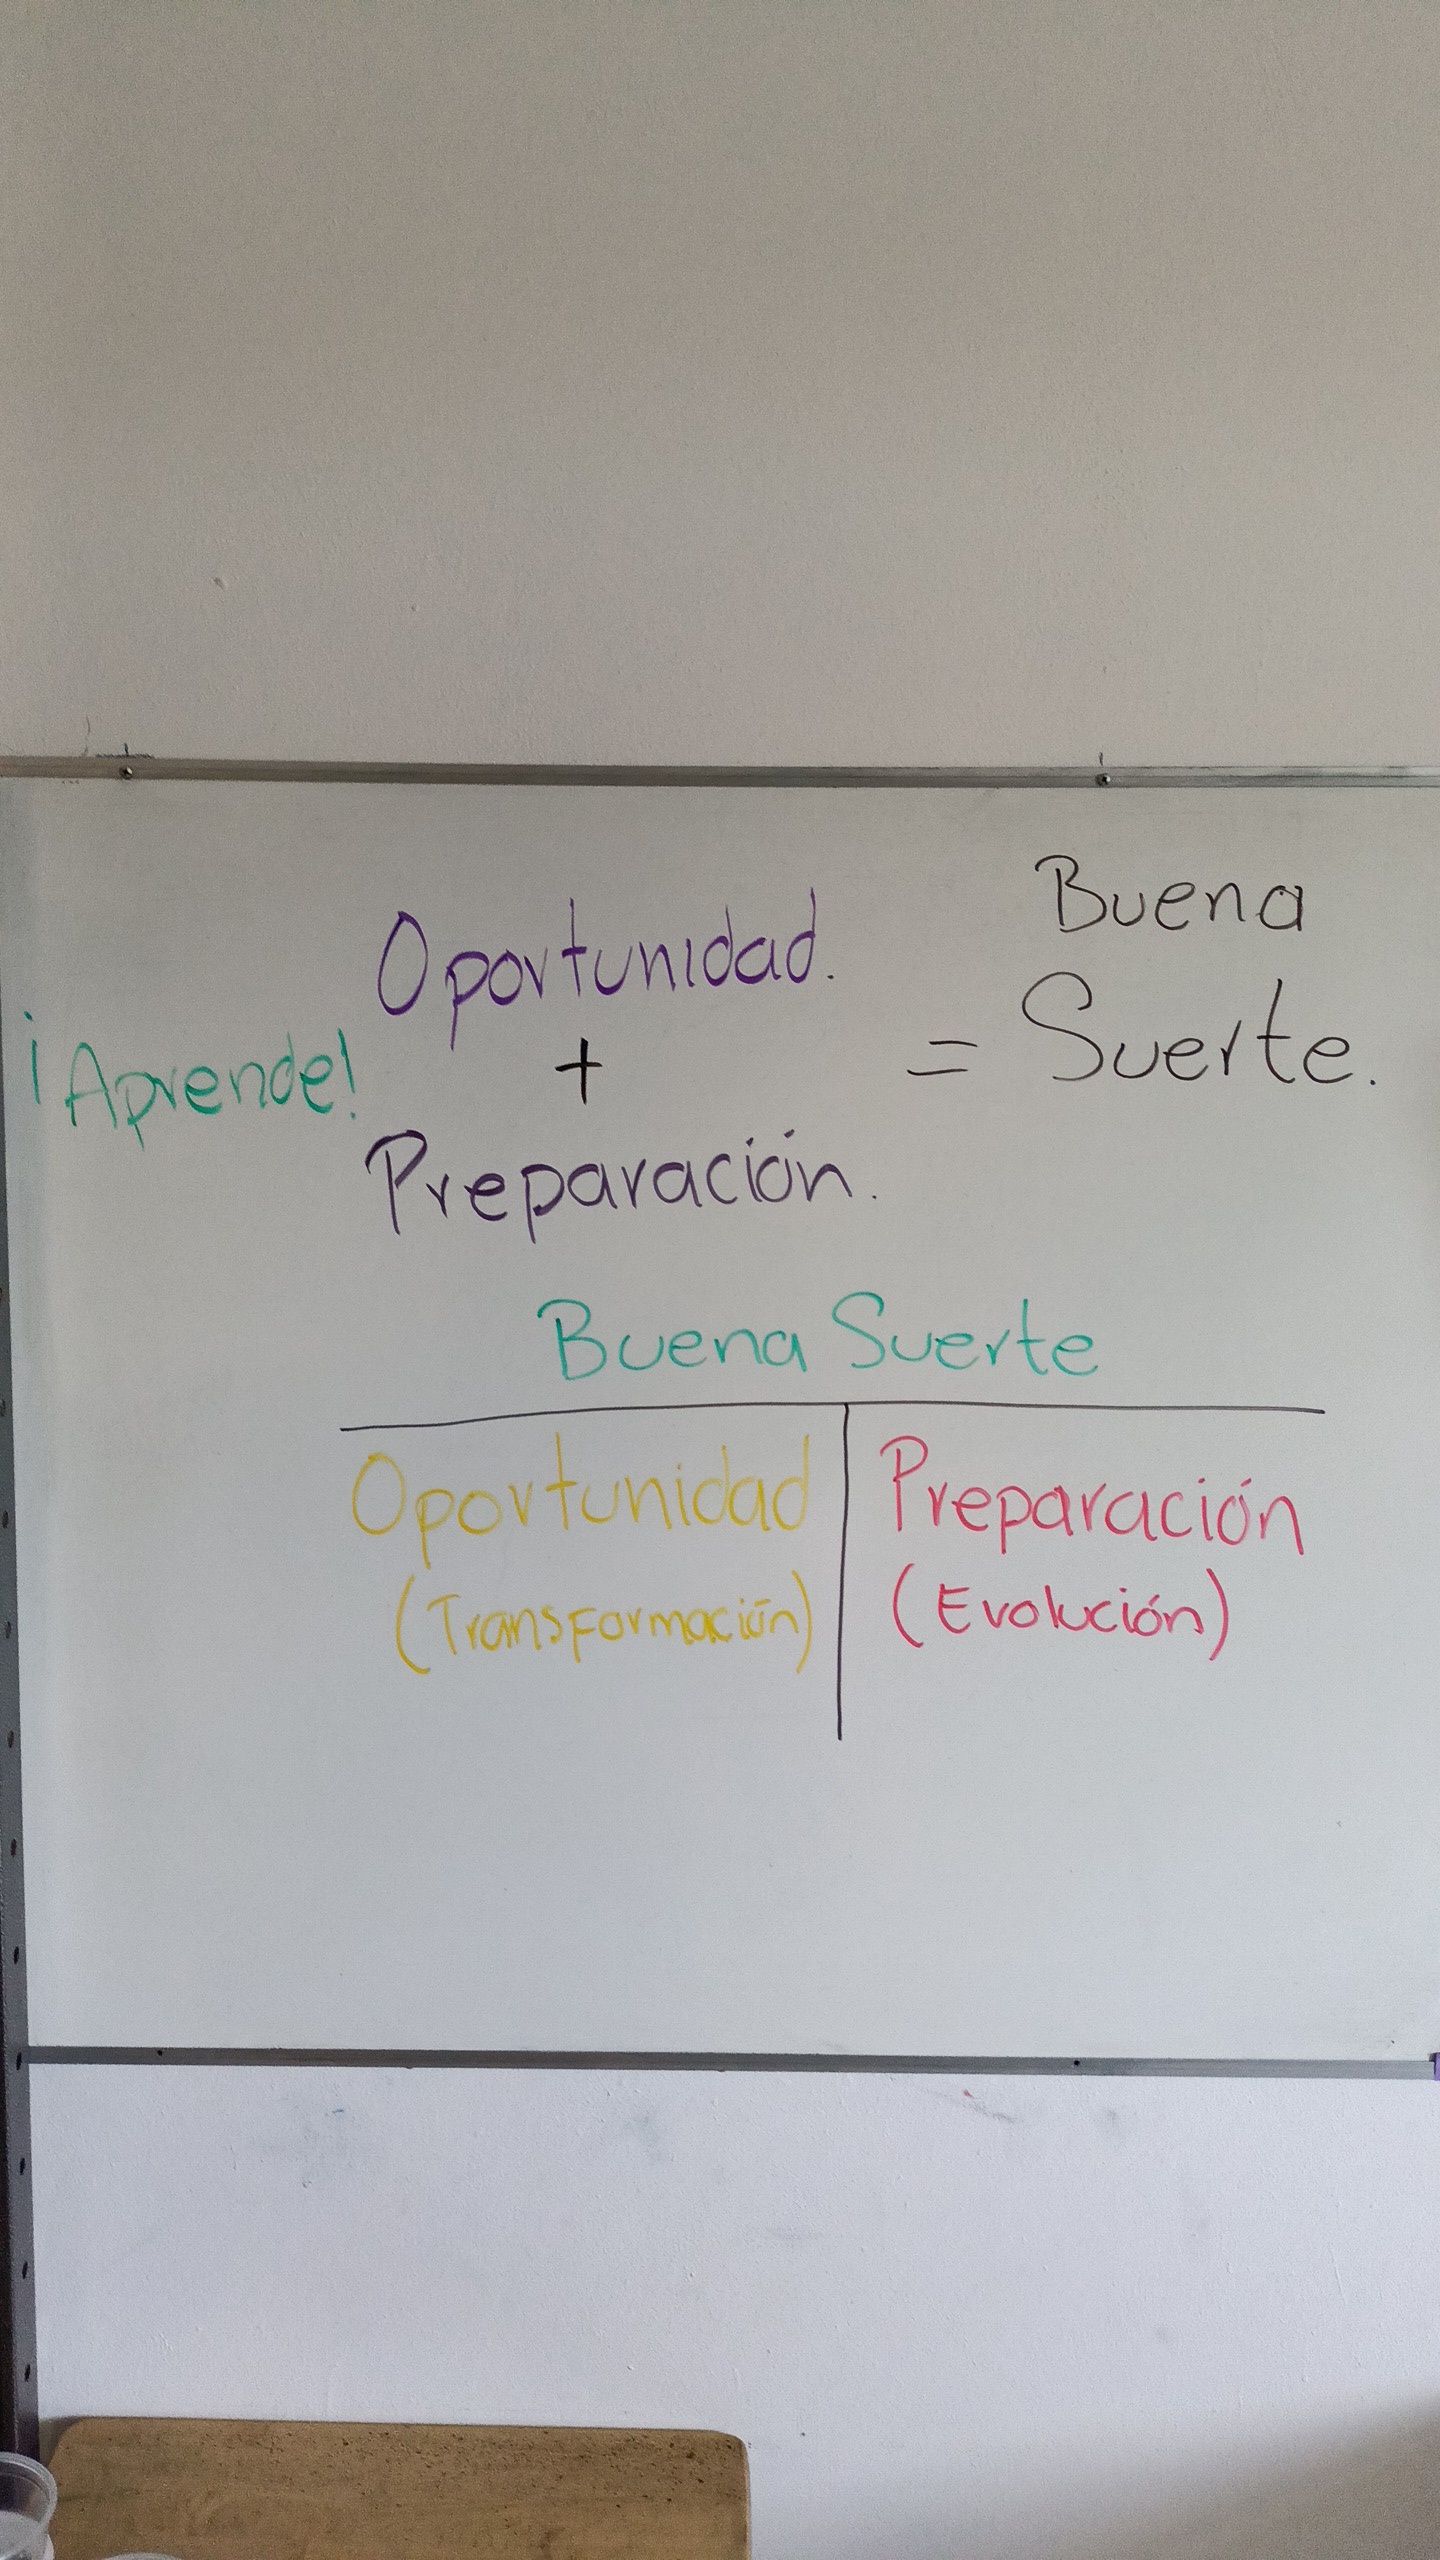 Oportunidad.
+
Preparación.
= Buena
Suerte.
¡Aprende!
Buena Suerte
Oportunidad
(Transformación)
Preparación
(Evolución)